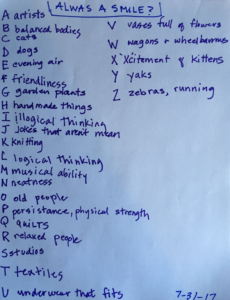 ALWAS A SMILE?
A artists
B balanced bodies
C cats
D dogs
E evening air
F friendliness
G garden plants
H handmade things
I illogical thinking
J Jokes that aren't mean
K Knitting
L logical thinking
M musical ability
N neatness
O old people
P persistance, physical strength
Q quilts
R relaxed people
S studios
T textiles
U underwear that fits
V vases full of flowers
W wagons + wheelbarrows
X Xcitement of Kittens
Y yaks
Z zebras, running
7-31-17